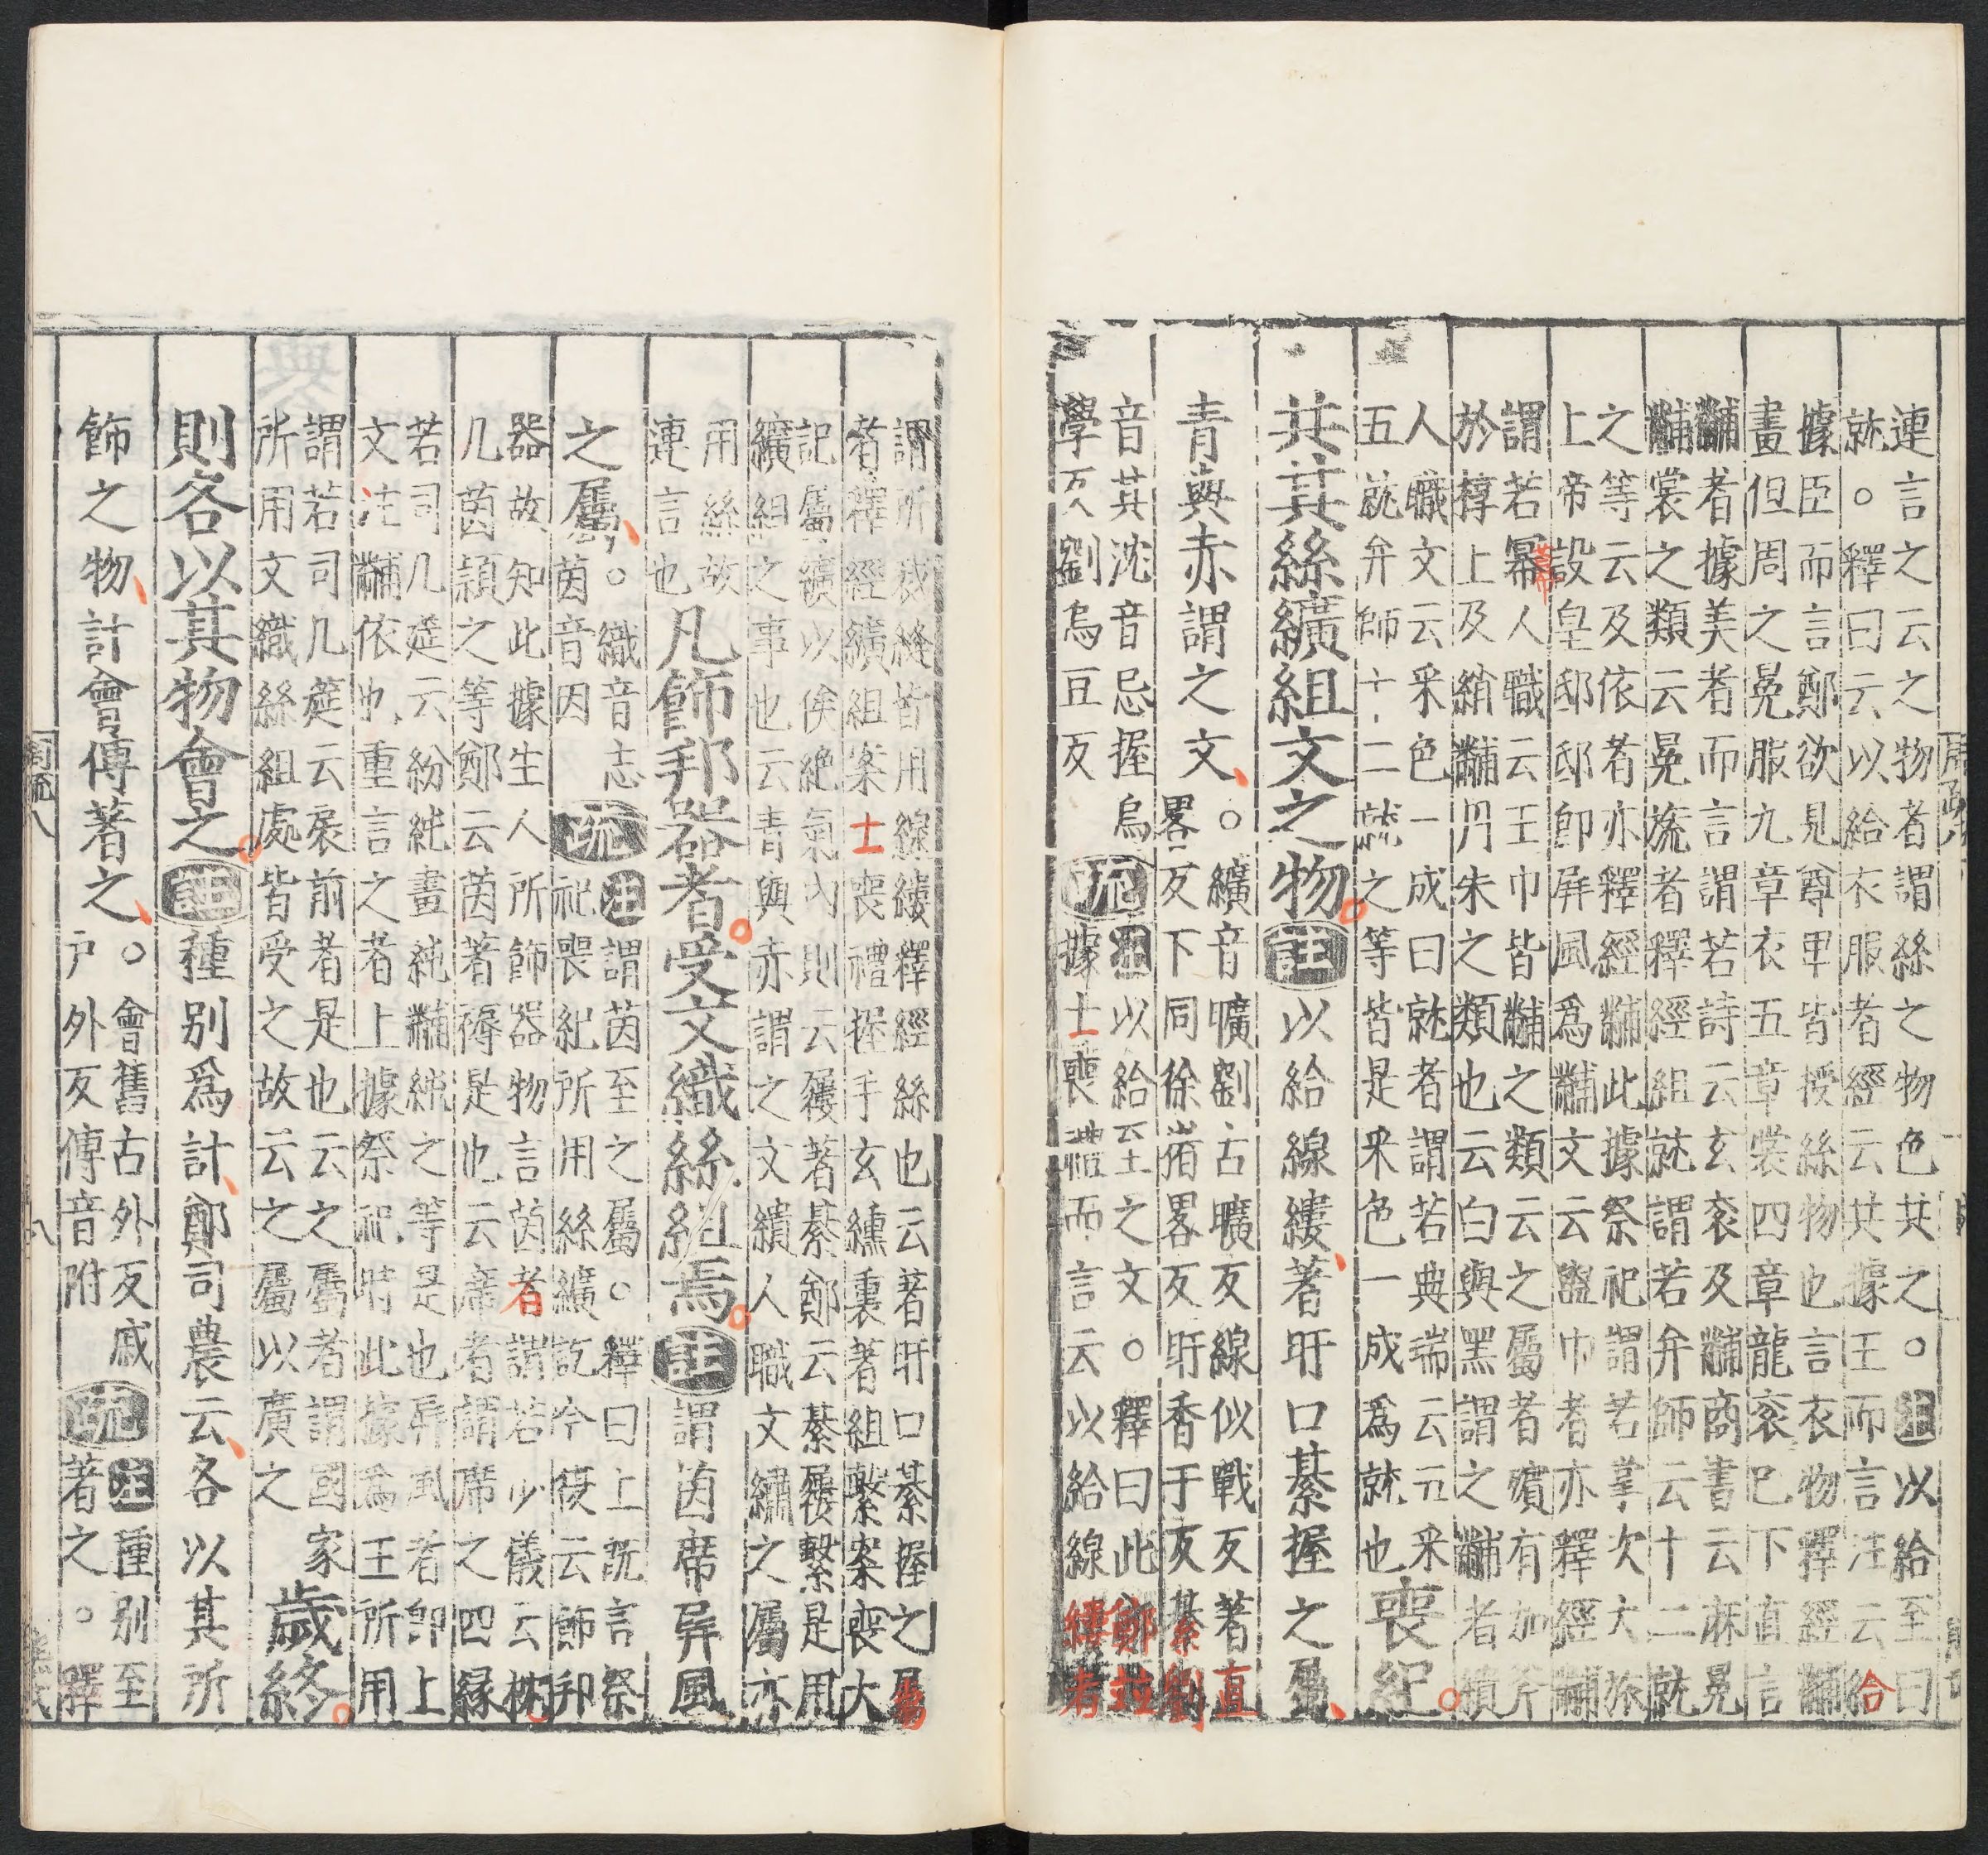 連言之云之物者謂絲之物色共之。注以給至曰
就。釋曰云以給衣服者經云共據王而言注云給
據臣而言鄭欲見尊卑皆授絲物也言衣物釋經黼
畫但周之冕服九章衣五章裳四章龍衮已下直言
黼者據美者而言謂若詩云玄衮及黼商書云麻冕
黼裳之類云冕旒者釋經組就謂若弁師云十二就
之等云及依者亦釋經黼此據祭祀謂若掌次大旅
上帝設皇邸邸卽屏風爲黼文云盥巾者亦釋經黼
謂若冪人職云王巾皆黼之類云之屬者殯有加斧
於椁上及綃黼丹朱之類也云白與黑謂之黼者繢
人職文云采色一成曰就者謂若典端云五采
五就弁師十二就之等皆是采色一成爲就也
喪紀
共其絲纊組文之物註以給線縷著盱口綦握之屬
青與赤謂之文。纊音曠劉古曠反線似戰反著直
畧反下同徐猪畧反盱香于反綦劉
音其沈音忌握烏
學反劉烏豆反
疏
注以給至之文。釋曰此鄭並
據士喪禮而言云以給線縷者
謂所裁縫皆用線縷釋經絲也云著盱口綦握之屬
者釋經纊組案士喪禮握手玄纁裏著組繫案喪大
記屬纊以俟絶氣內則云屨著綦鄭云綦屨繫是用
纊組之事也云青與赤謂之文繢人職文繡之屬亦
用絲故
連言也
凡飾邦器者受文織絲組焉註謂茵席屏風
之屬。織音志
茵音因
疏
注謂茵至之屬。釋曰上旣言祭
祀喪紀所用絲纊訖今復云飾邦
器故知此據生人所飾器物言茵者謂若少儀云枕
几茵穎之等鄭云茵著褥是也云席者謂席之四緣
若司几筵云紛純畫純黼純之等是也屏風者卽上
文注黼依也重言之者上據祭祀時此據爲王所用
謂若司几筵云扆前者是也云之屬者謂國家
所用文織絲組處皆受之故云之屬以廣之
歲終
則各以其物會之註種别爲計鄭司農云各以其所
飾之物計會傳著之。會舊古外反戚
戶外反傳音附
疏
注種别至
著之。釋